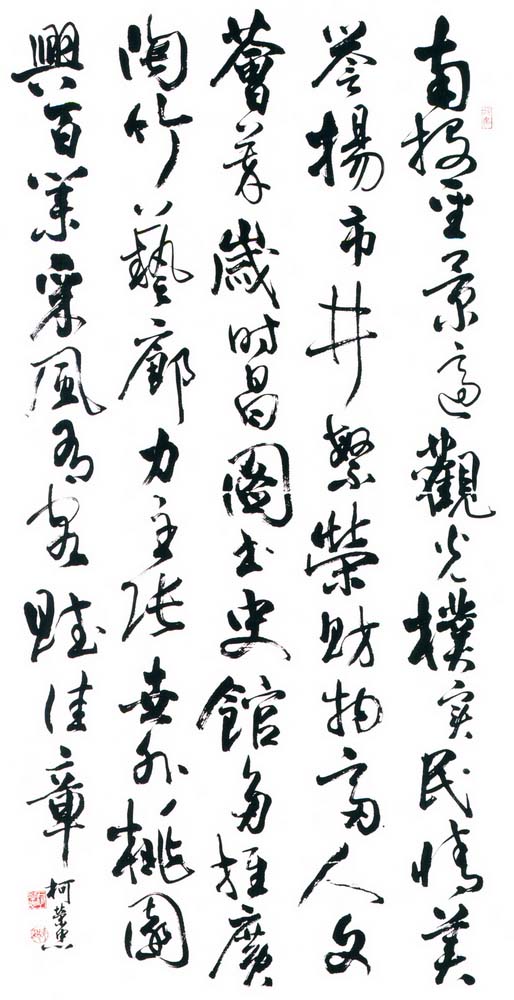 南投聖景適觀光樸實民情美
譽揚市井繁榮財物富人文
薈萃歲時昌圖書史館多推廣
陶竹藝廊力主張世外桃園
興百業采風有客賦佳章
柯榮